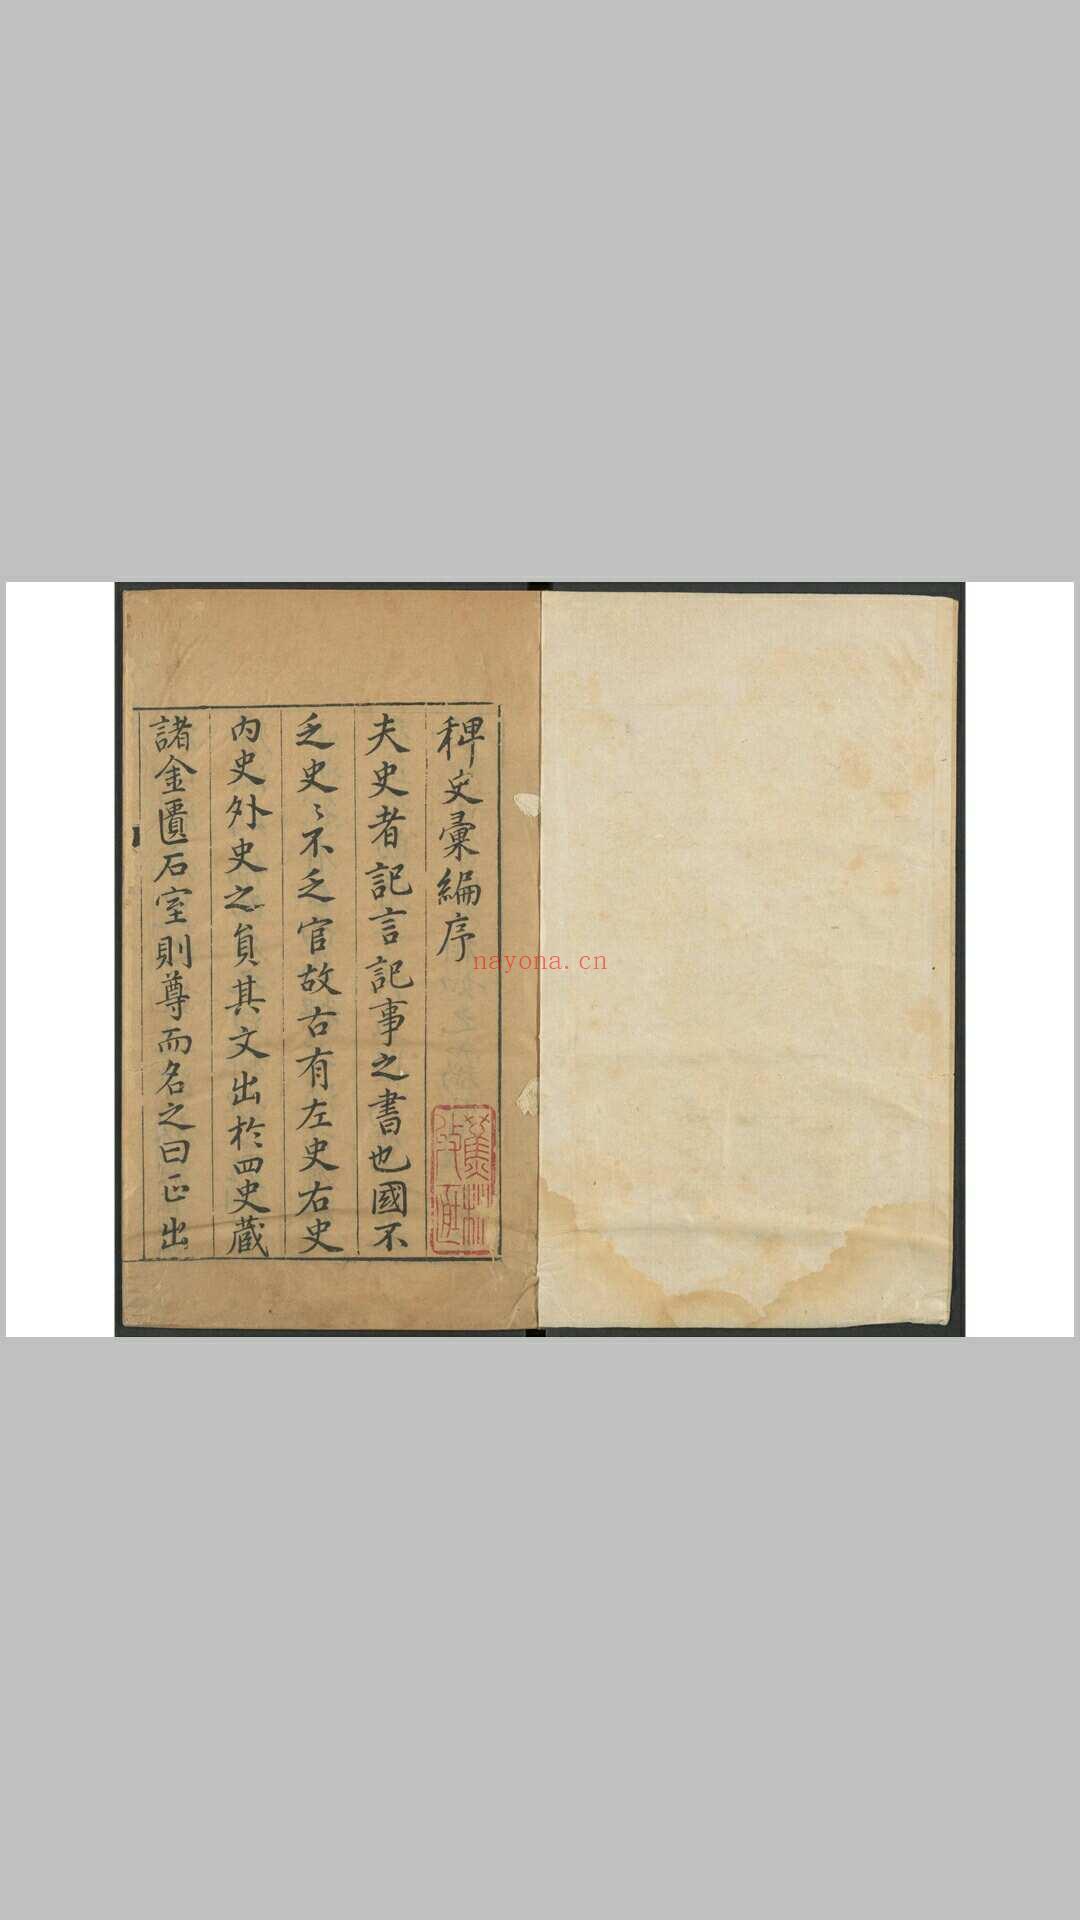 稗史彙編序
夫史者記言記事之書也國不
乏史〻不乏官故古有左史右史
内史外史之負其文出於四史藏
諸金匱石室則尊而名之曰正出
nayona.cn